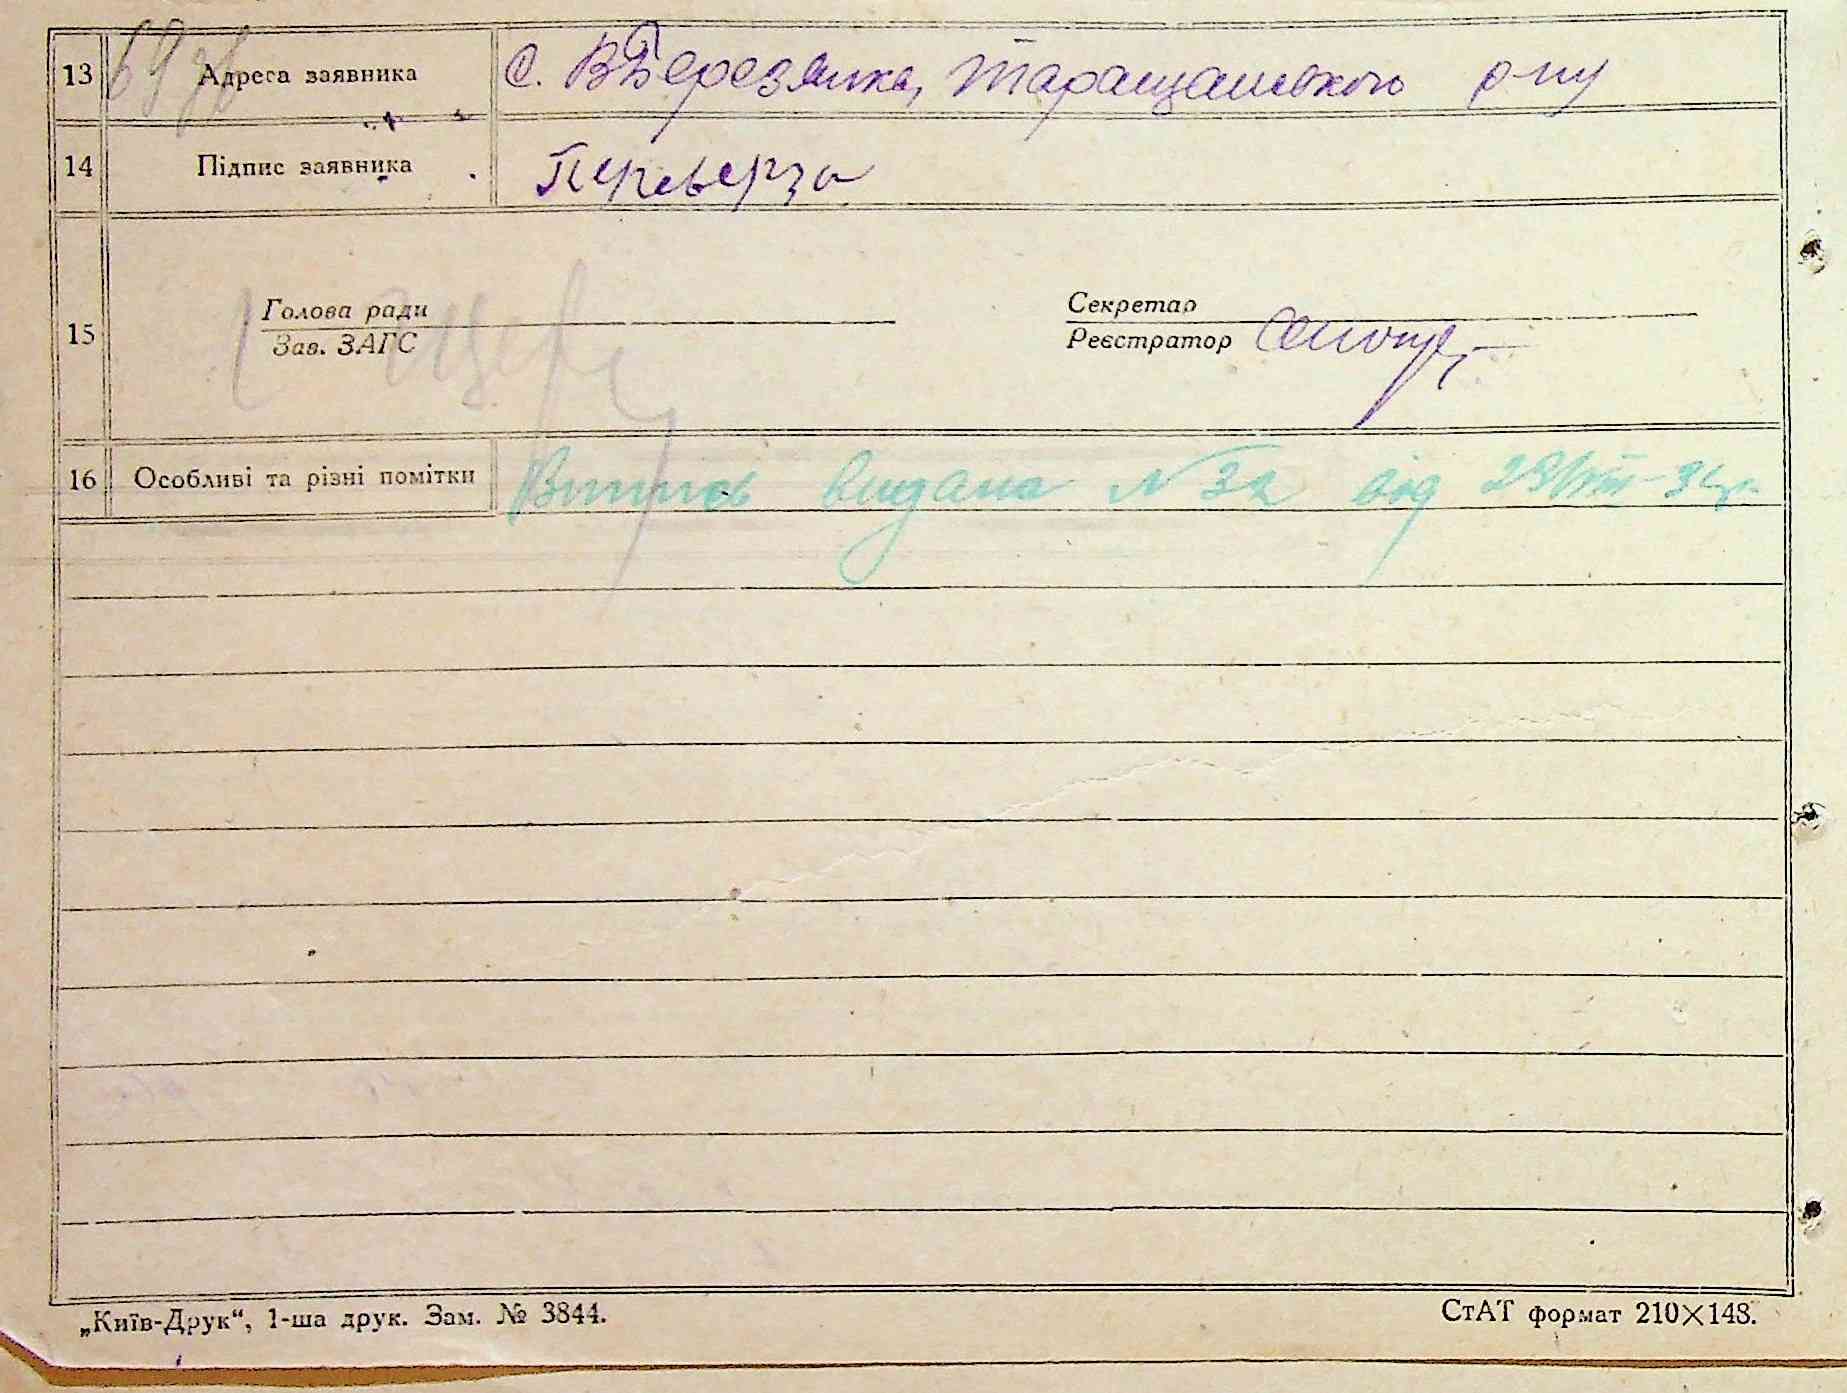 13 Адреса заявника с. ВБерезянка, Таращанського р-ну
14 Підпис заявника Переверза
15
Голова ради
Зав. ЗАГС
Секретар
Реєстратор
16 Особливі та різні помітки Випись видана № 32 від
„Київ-Друк“, 1-ша друк. Зам. № 3844.
СтАТ формат 210×148.